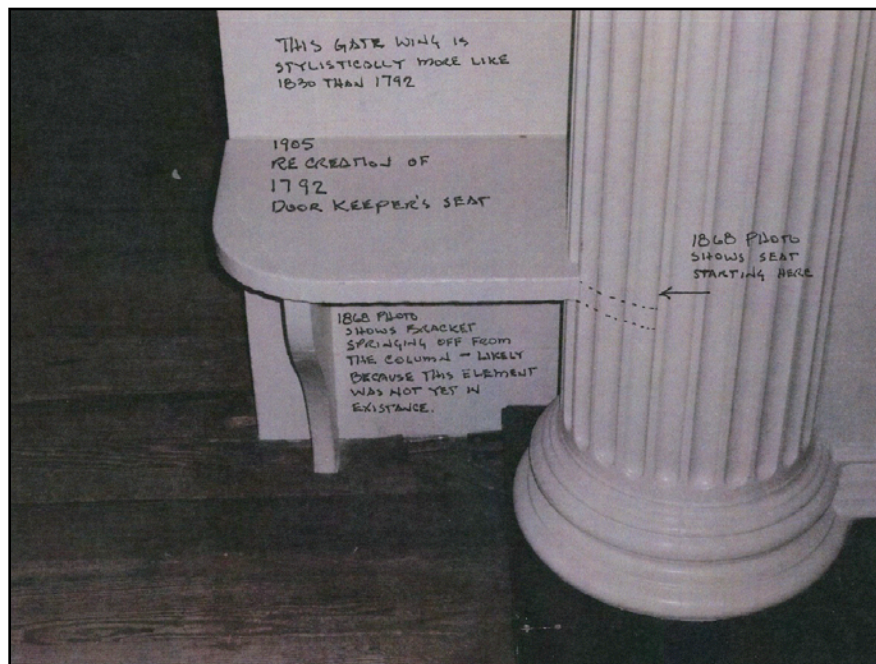 THIS GATE WING IS
STYLISTICALLY MORE LIKE
1830 THAN 1792
1905
RE CREATION OF
1792
DOOR KEEPER'S SEAT
1868 PHOTO
SHOWS SEAT
STARTING HERE
1868 PHOTO
SHOWS BRACKET
SPRINGING OFF FROM
THE COLUMN - LIKELY
BECAUSE THIS ELEMENT
WAS NOT YET IN
EXISTANCE.